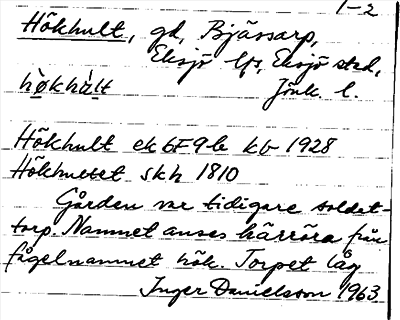 1-2
Hökhult, gd, Bjässarp,
Eksjö lfs, Eksjö stad,
hø̀khàlt Jönk. l.
Hökhult ek 6F9b kb 1928
Hökhultet skh 1810
Gården var tidigare soldat-
torp. Namnet anses härröra från
fågelnamnet hök. Torpet låg
Inger Danielsson 1963